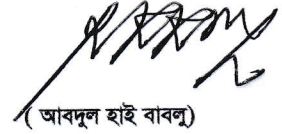 ( আবদুল হাই বাবলু)